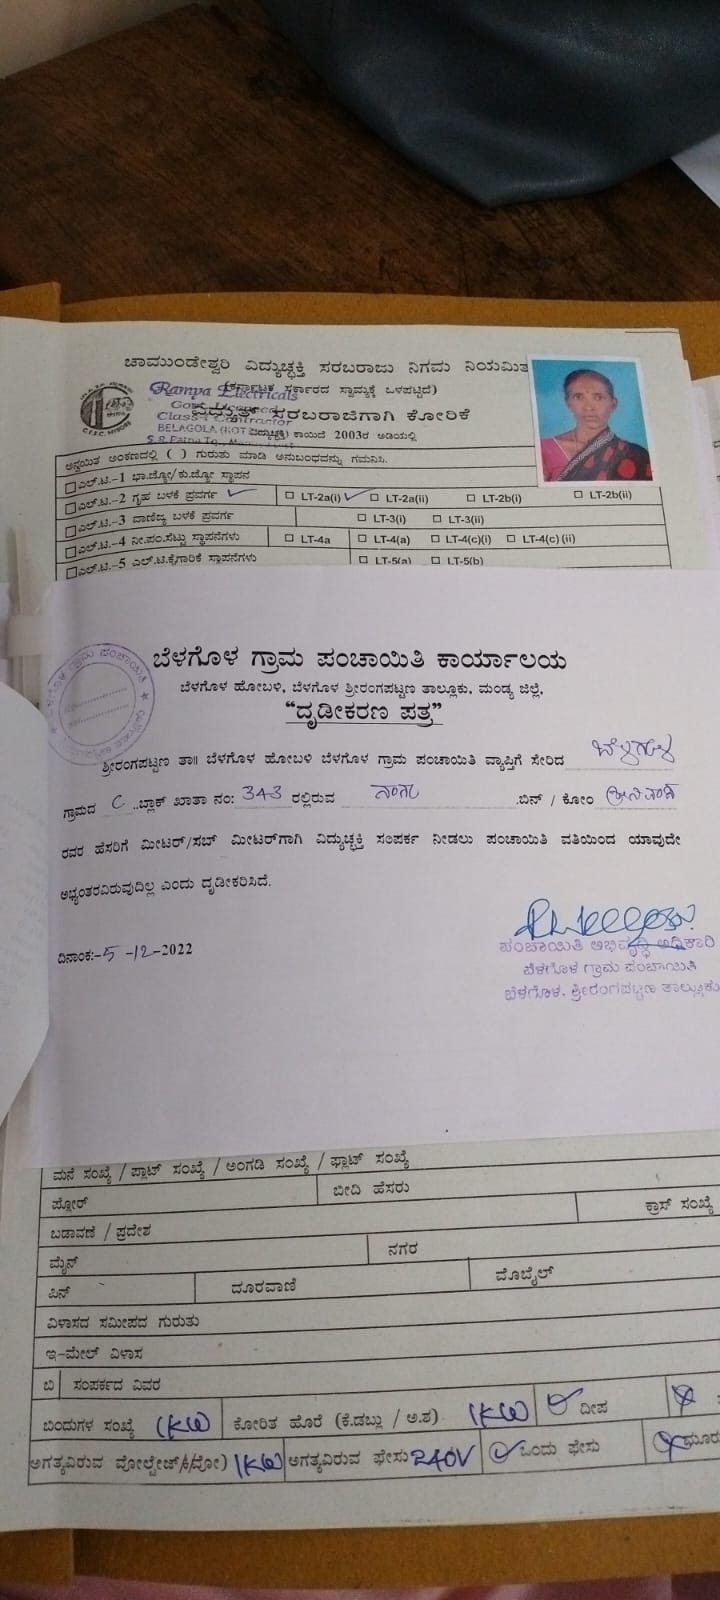 ಚಾಮುಂಡೇಶ್ವರಿ ವಿದ್ಯುಚ್ಛಕ್ತಿ ಸರಬರಾಜು ನಿಗಮ ನಿಯಮಿತ
(ಕರ್ನಾಟಕ ಸರ್ಕಾರದ ಸ್ವಾಮ್ಯಕ್ಕೆ ಒಳಪಟ್ಟಿದೆ)
Rampa Electricals
ವಿದ್ಯುತ್ ಸರಬರಾಜಿಗಾಗಿ ಕೋರಿಕೆ
Class-I Contractor
BELAGOLA
ಕಾಯಿದೆ 2003ರ ಅಡಿಯಲ್ಲಿ
ಅನ್ವಯಿತ ಅಂಕಣದಲ್ಲಿ ( ) ಗುರುತು ಮಾಡಿ ಅನುಬಂಧವನ್ನು ಗಮನಿಸಿ.
ಎಲ್.ಟಿ.-1 ಭಾ.ಜ್ಯೋ/ಕು.ಜ್ಯೋ ಸ್ಥಾಪನ
ಎಲ್.ಟಿ.-2 ಗೃಹ ಬಳಕೆ ಪ್ರವರ್ಗ ✓ LT-2a(i) ✓ LT-2a(ii) LT-2b(i) LT-2b(ii)
ಎಲ್.ಟಿ.-3 ವಾಣಿಜ್ಯ ಬಳಕೆ ಪ್ರವರ್ಗ LT-3(i) LT-3(ii)
ಎಲ್.ಟಿ.-4 ನೀ.ಪಂ.ಸೆಟ್ಟು ಸ್ಥಾಪನೆಗಳು LT-4a LT-4(a) LT-4(c)(i) LT-4(c) (ii)
ಎಲ್.ಟಿ.-5 ಎಲ್.ಟಿ.ಕೈಗಾರಿಕೆ ಸ್ಥಾಪನೆಗಳು LT-5(a) LT-5(b)
ಬೆಳಗೊಳ ಗ್ರಾಮ ಪಂಚಾಯಿತಿ ಕಾರ್ಯಾಲಯ
ಬೆಳಗೊಳ ಹೋಬಳಿ, ಬೆಳಗೊಳ ಶ್ರೀರಂಗಪಟ್ಟಣ ತಾಲ್ಲೂಕು, ಮಂಡ್ಯ ಜಿಲ್ಲೆ,
"ದೃಡೀಕರಣ ಪತ್ರ"
ಶ್ರೀರಂಗಪಟ್ಟಣ ತಾ॥ ಬೆಳಗೊಳ ಹೋಬಳಿ ಬೆಳಗೊಳ ಗ್ರಾಮ ಪಂಚಾಯಿತಿ ವ್ಯಾಪ್ತಿಗೆ ಸೇರಿದ ಬೆಳಗೊಳ
ಗ್ರಾಮದ C ..ಬ್ಲಾಕ್ ಖಾತಾ ನಂ: 343 ರಲ್ಲಿರುವ .ಬಿನ್ / ಕೋಂ
ರವರ ಹೆಸರಿಗೆ ಮೀಟರ್/ಸಬ್ ಮೀಟರ್‌ಗಾಗಿ ವಿದ್ಯುಚ್ಛಕ್ತಿ ಸಂಪರ್ಕ ನೀಡಲು ಪಂಚಾಯಿತಿ ವತಿಯಿಂದ ಯಾವುದೇ
ಅಭ್ಯಂತರವಿರುವುದಿಲ್ಲ ಎಂದು ದೃಡೀಕರಿಸಿದೆ.
ದಿನಾಂಕ:-5 -12-2022
ಪಂಚಾಯಿತಿ ಅಭಿವೃದ್ಧಿ ಅಧಿಕಾರಿ
ಬೆಳಗೊಳ ಗ್ರಾಮ ಪಂಚಾಯಿತಿ
ಬೆಳಗೊಳ, ಶ್ರೀರಂಗಪಟ್ಟಣ ತಾಲ್ಲೂಕು
ಮನೆ ಸಂಖ್ಯೆ / ಪ್ಲಾಟ್ ಸಂಖ್ಯೆ / ಅಂಗಡಿ ಸಂಖ್ಯೆ / ಫ್ಲಾಟ್ ಸಂಖ್ಯೆ
ಪ್ಲೋರ್ ಬೀದಿ ಹೆಸರು
ಬಡಾವಣೆ / ಪ್ರದೇಶ ಕ್ರಾಸ್ ಸಂಖ್ಯೆ
ಮೈನ್ ನಗರ
ಪಿನ್ ದೂರವಾಣಿ ಮೊಬೈಲ್
ವಿಳಾಸದ ಸಮೀಪದ ಗುರುತು
ಇ-ಮೇಲ್ ವಿಳಾಸ
ಬಿ ಸಂಪರ್ಕದ ವಿವರ
ಬಿಂದುಗಳ ಸಂಖ್ಯೆ 1KW ಕೋರಿತ ಹೊರೆ (ಕೆ.ಡಬ್ಲು / ಅ.ಶ) 1KW ದೀಪ
ಅಗತ್ಯವಿರುವ ವೋಲ್ಟೇಜ್ 1KW ಅಗತ್ಯವಿರುವ ಫೇಸು 240V ಒಂದು ಫೇಸು